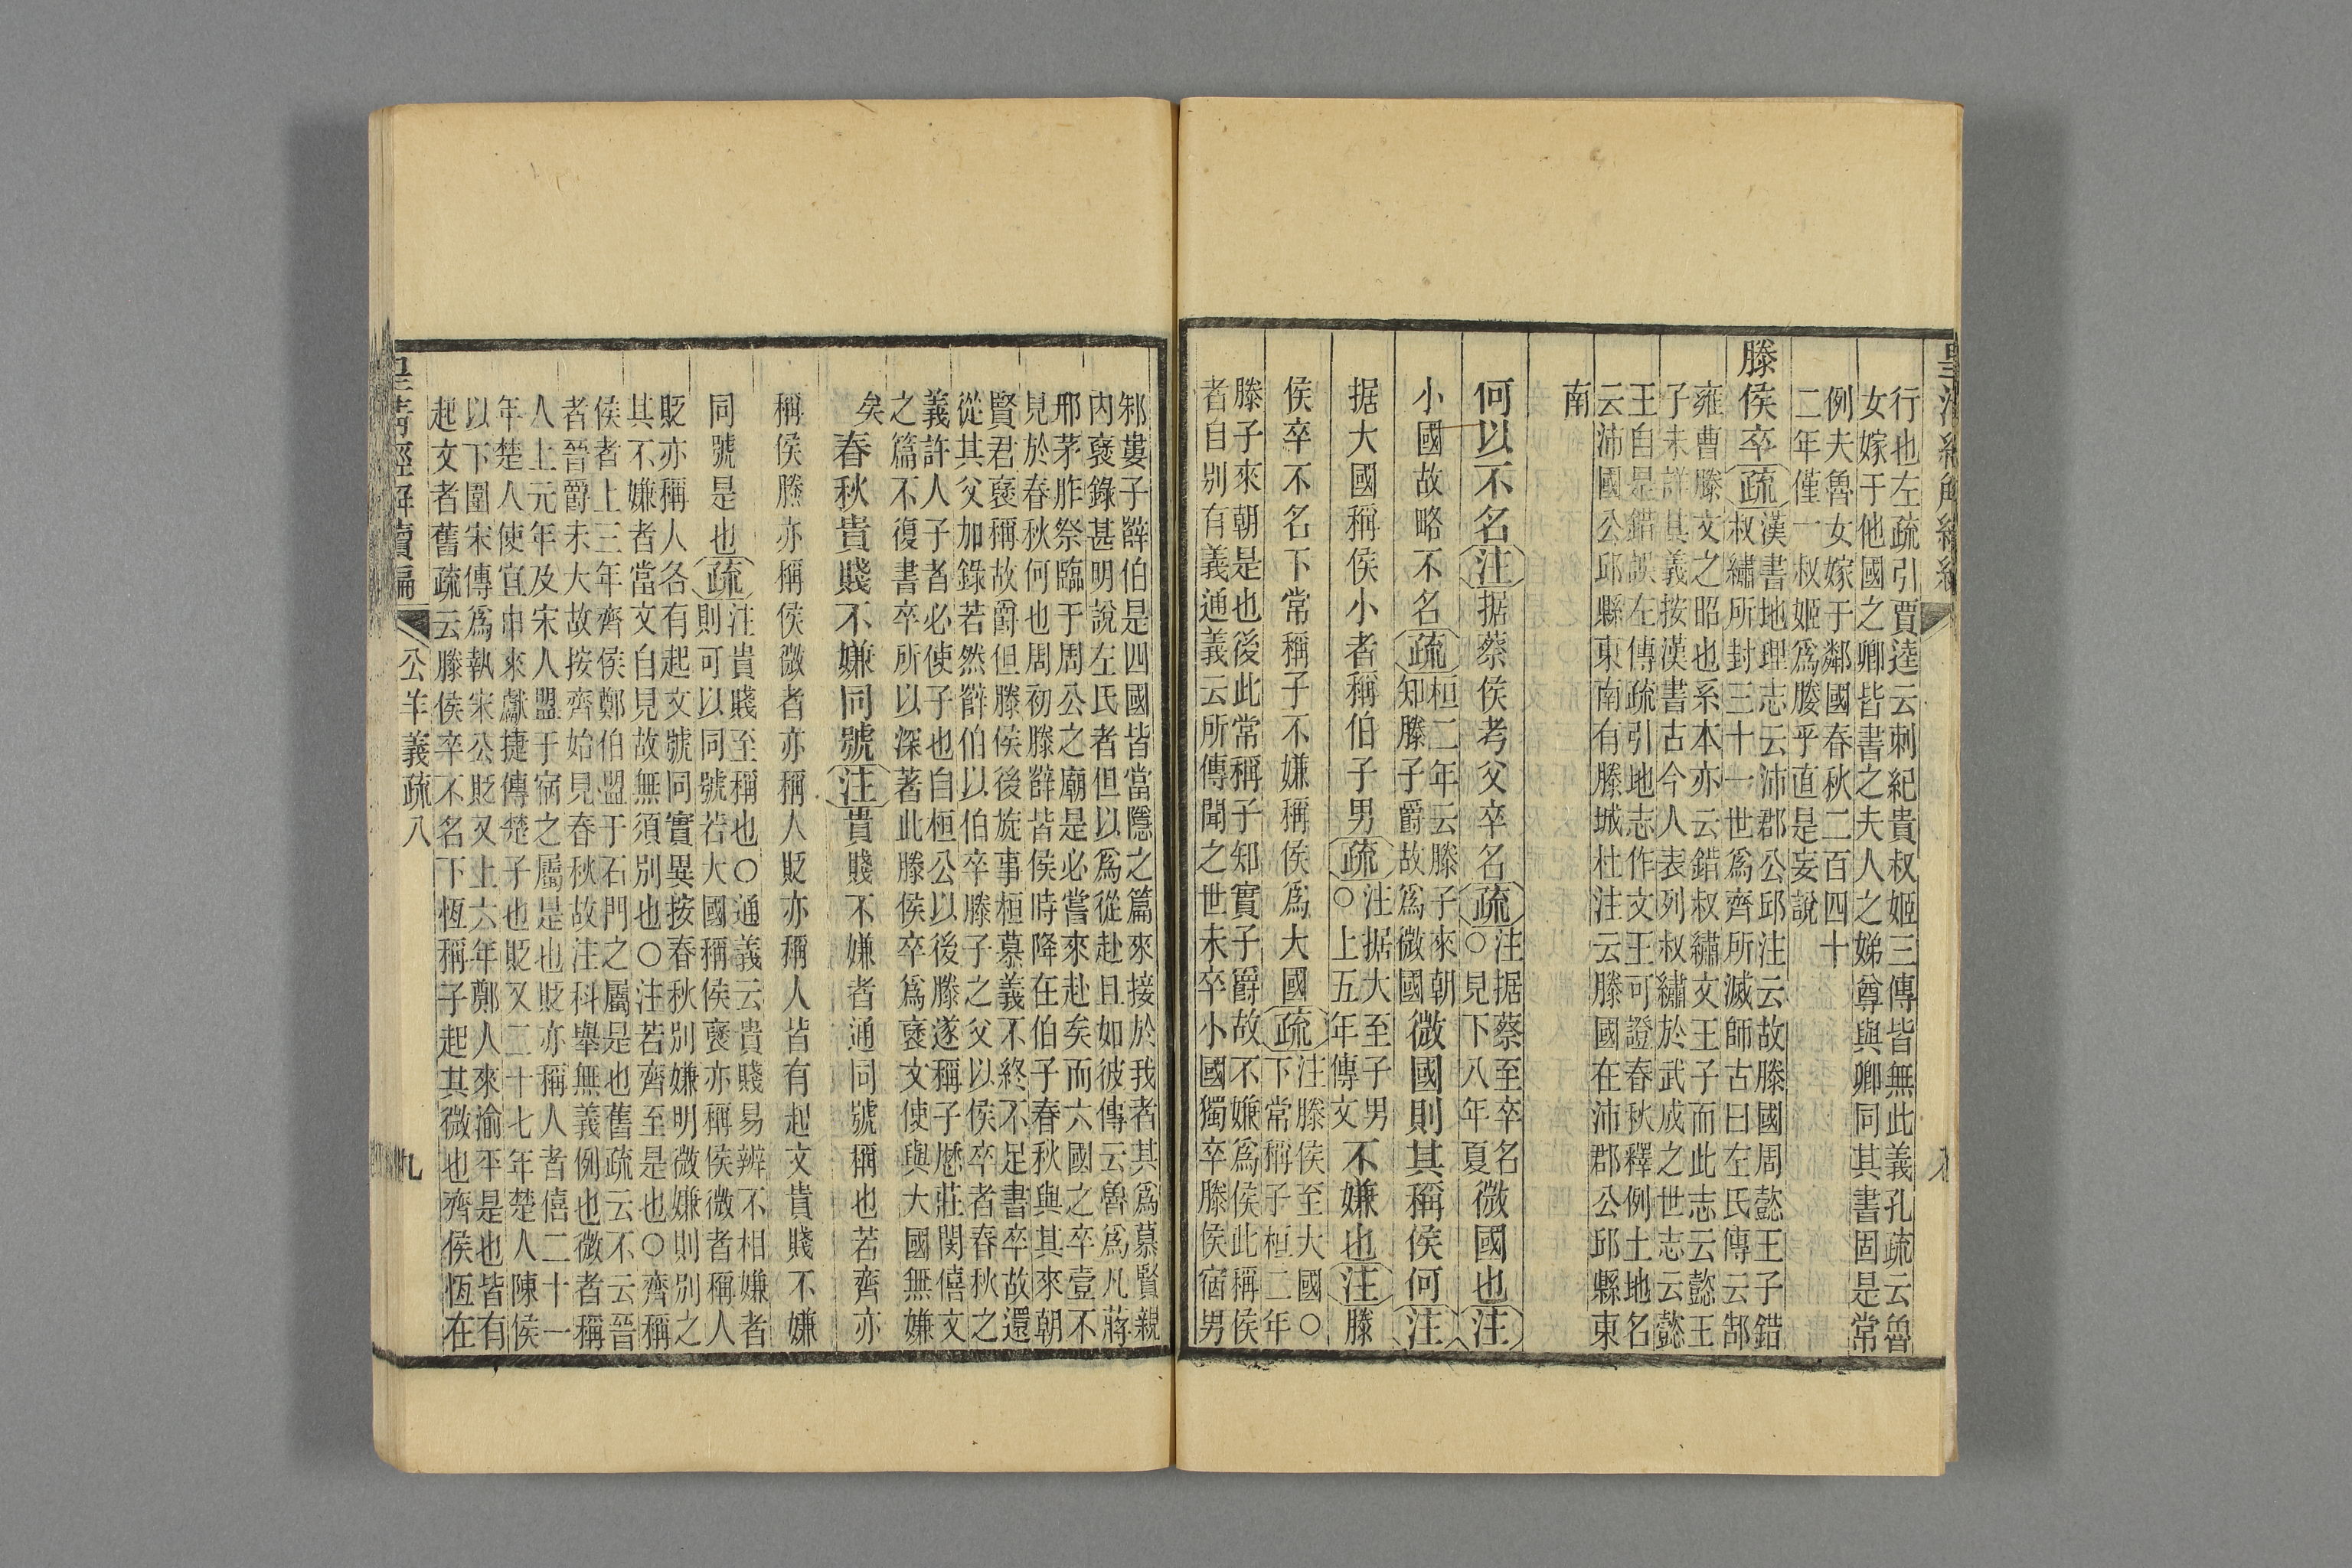 行也左疏引賈逵云刺紀貴叔姬三傳皆無此義孔疏云魯
女嫁于他國之卿皆書之夫人之娣尊與卿同其書固是常
例夫魯女嫁于鄰國春秋二百四十
二年僅一叔姬爲媵乎直是妄說
滕侯卒疏漢書地理志云沛郡公邱注云故滕國周懿王子錯
叔繡所封三十一世爲齊所滅師古曰左氏傳云郜
雍曹滕文之昭也系本亦云錯叔繡文王子而此志云懿王
子未詳其義按漢書古今人表列叔繡於武成之世志云懿
王自是錯誤左傳疏引地志作文王可證春秋釋例土地名
云沛國公邱縣東南有滕城杜注云滕國在沛郡公邱縣東
南
何以不名注据蔡侯考父卒名疏注据蔡至卒名○見下八年夏微國也注
小國故略不名疏桓二年云滕子來朝知滕子爵故爲微國微國則其稱侯何注
据大國稱侯小者稱伯子男疏注据大至子男○上五年傳文不嫌也注滕
侯卒不名下常稱子不嫌稱侯爲大國疏注滕侯至大國○下常稱子桓二年
滕子來朝是也後此常稱子知實子爵故不嫌爲侯此稱侯
者自別有義通義云所傳聞之世未卒小國獨卒滕侯宿男
邾婁子薛伯是四國皆當隱之篇來接於我者其爲慕賢親
內襃錄甚明說左氏者但以爲從赴且如彼傳云魯爲凡蔣
邢茅胙祭臨于周公之廟是必嘗來赴矣而六國之卒壹不
見於春秋何也周初滕薛皆侯時降在伯子春秋與其來朝
賢君襃稱故爵但滕侯後旋事桓慕義不終不足書卒故還
從其父加錄若然薛伯以伯卒滕子之父以侯卒者春秋之
義許人子者必使子也自桓公以後滕遂稱子歷莊閔僖文
之篇不復書卒所以深著此滕侯卒爲襃文使與大國無嫌
矣春秋貴賤不嫌同號注貴賤不嫌者通同號稱也若齊亦
稱侯滕亦稱侯微者亦稱人貶亦稱人皆有起文貴賤不嫌
同號是也疏注貴賤至稱也○通義云貴賤易辨不相嫌者
則可以同號若大國稱侯襃亦稱侯微者稱人
貶亦稱人各有起文號同實異按春秋別嫌明微嫌則別之
其不嫌者當文自見故無須別也○注若齊至是也○齊稱
侯者上三年齊侯鄭伯盟于石門之屬是也舊疏云不云晉
者晉爵未大故按齊始見春秋故注科舉無義例也微者稱
人上元年及宋人盟于宿之屬是也貶亦稱人者僖二十一
年楚人使宜申來獻捷傳楚子也貶又二十七年楚人陳侯
以下圍宋傳爲執宋公貶又上六年鄭人來渝平是也皆有
起文者舊疏云滕侯卒不名下恆稱子起其微也齊侯恆在
皇清經解續編 公羊義疏八 九